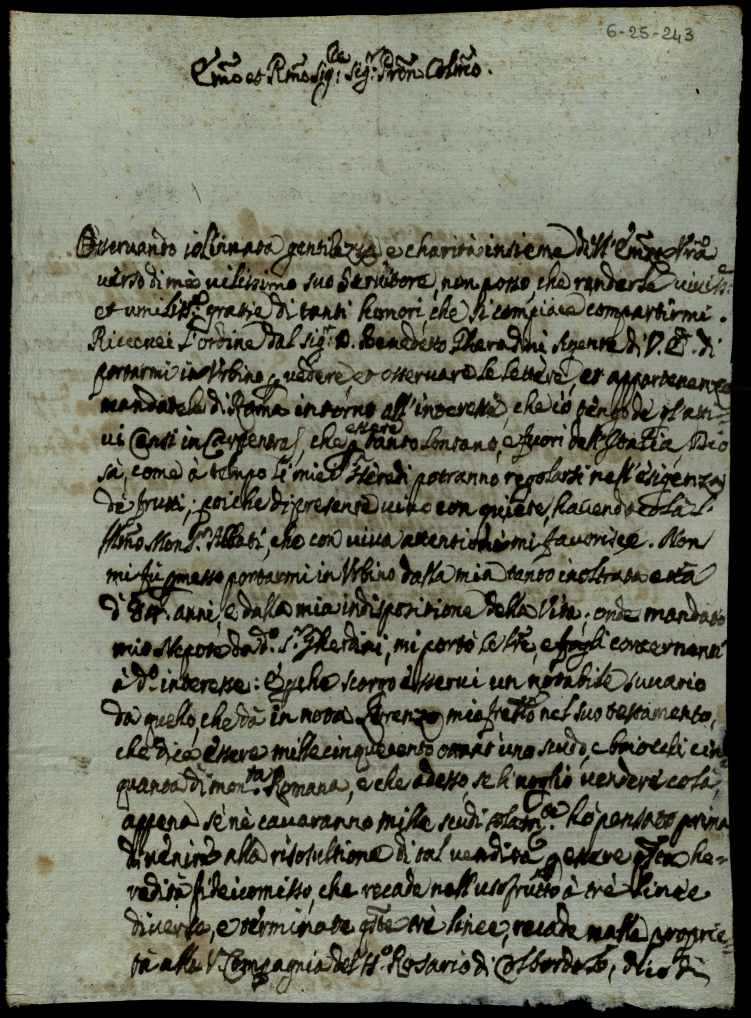 6-25-243
Emo et Rmo Sig:re Sig:r Pron Colmo.
Osservando io l'innata gentilezza e charità insieme dell'Emza Vra
verso di me vilissimo suo Servitore, non posso che renderle vivis:e
et umiliss:e gratie di tanti honori, che si compiace compartirmi.
Ricevei l'ordine dal sig:r D. Benedetto Gherardini Agente di V. E. di
portarmi in Urbino p vedere, et osservare le lettere, et appartenenze
mandatele di Roma intorno all'interesse, che io tengo de
vi Censi in Carpentras, che p essere tanto lontano, e fuori dell'Italia, Dio
sà, come à tempo li miei Heredi potranno regolarsi nell'esigenza
de frutti; poiche di presente vivo con quiete, havendo colà l'
Illmo Mon.r Abbati, che con viva attentione mi favorisce. Non
mi fù pmesso portarmi in Urbino dalla mia tanto inoltrata età
d' 84. anni, e dalla mia indispositione della Vita; onde mandato
mio Nepote da d.o S.r Gherardini, mi portò le lre, e fogli concernenti
à d.o interesse: E pche scorgo esservi un notabile svario
da quello, che dà in nota Lorenzo mio frello nel suo testamento,
che dice essere mille cinquecento ottant'uno scudo, e baiocchi cin=
quanta di mon.ta Romana, e che adesso, se li voglio vendere colà,
appena se nè cavaranno mille scudi solam.te hò pensato prima
di venire alla risolutione di tal vendita p essere qsta he=
redità fideicomisso, che recade nell'usofrutto à trè linee
diverse, e terminate qste trè linee, recade nella proprie=
tà alla V. Compagnia del SS.o Rosario di Colbordolo,